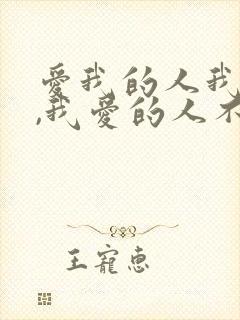 愛我的人我
,我愛的人不
王寵惠